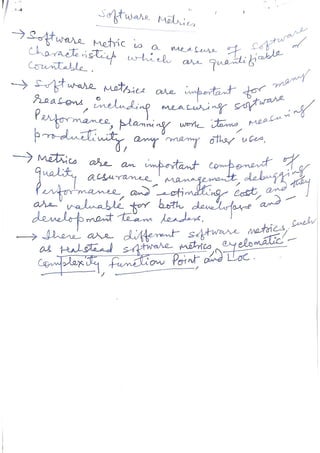 Software Metrics
→ Software Metric is a measure of Software
characteristics which are quantifiable or
Countable.
→ Software metrics are important for many
reasons, including measuring software
Performance, planning work items, measuring
productivity, any many other uses.
→ Metrics are an important component of
quality assurance, management, debugging
Performance, and estimating cost, and they
are valuable for both developers and -
development team leaders.
→ There are different software metrics, such
as Halstead software metrics, cyclomatic -
Complexity, Function Point, and LOC.